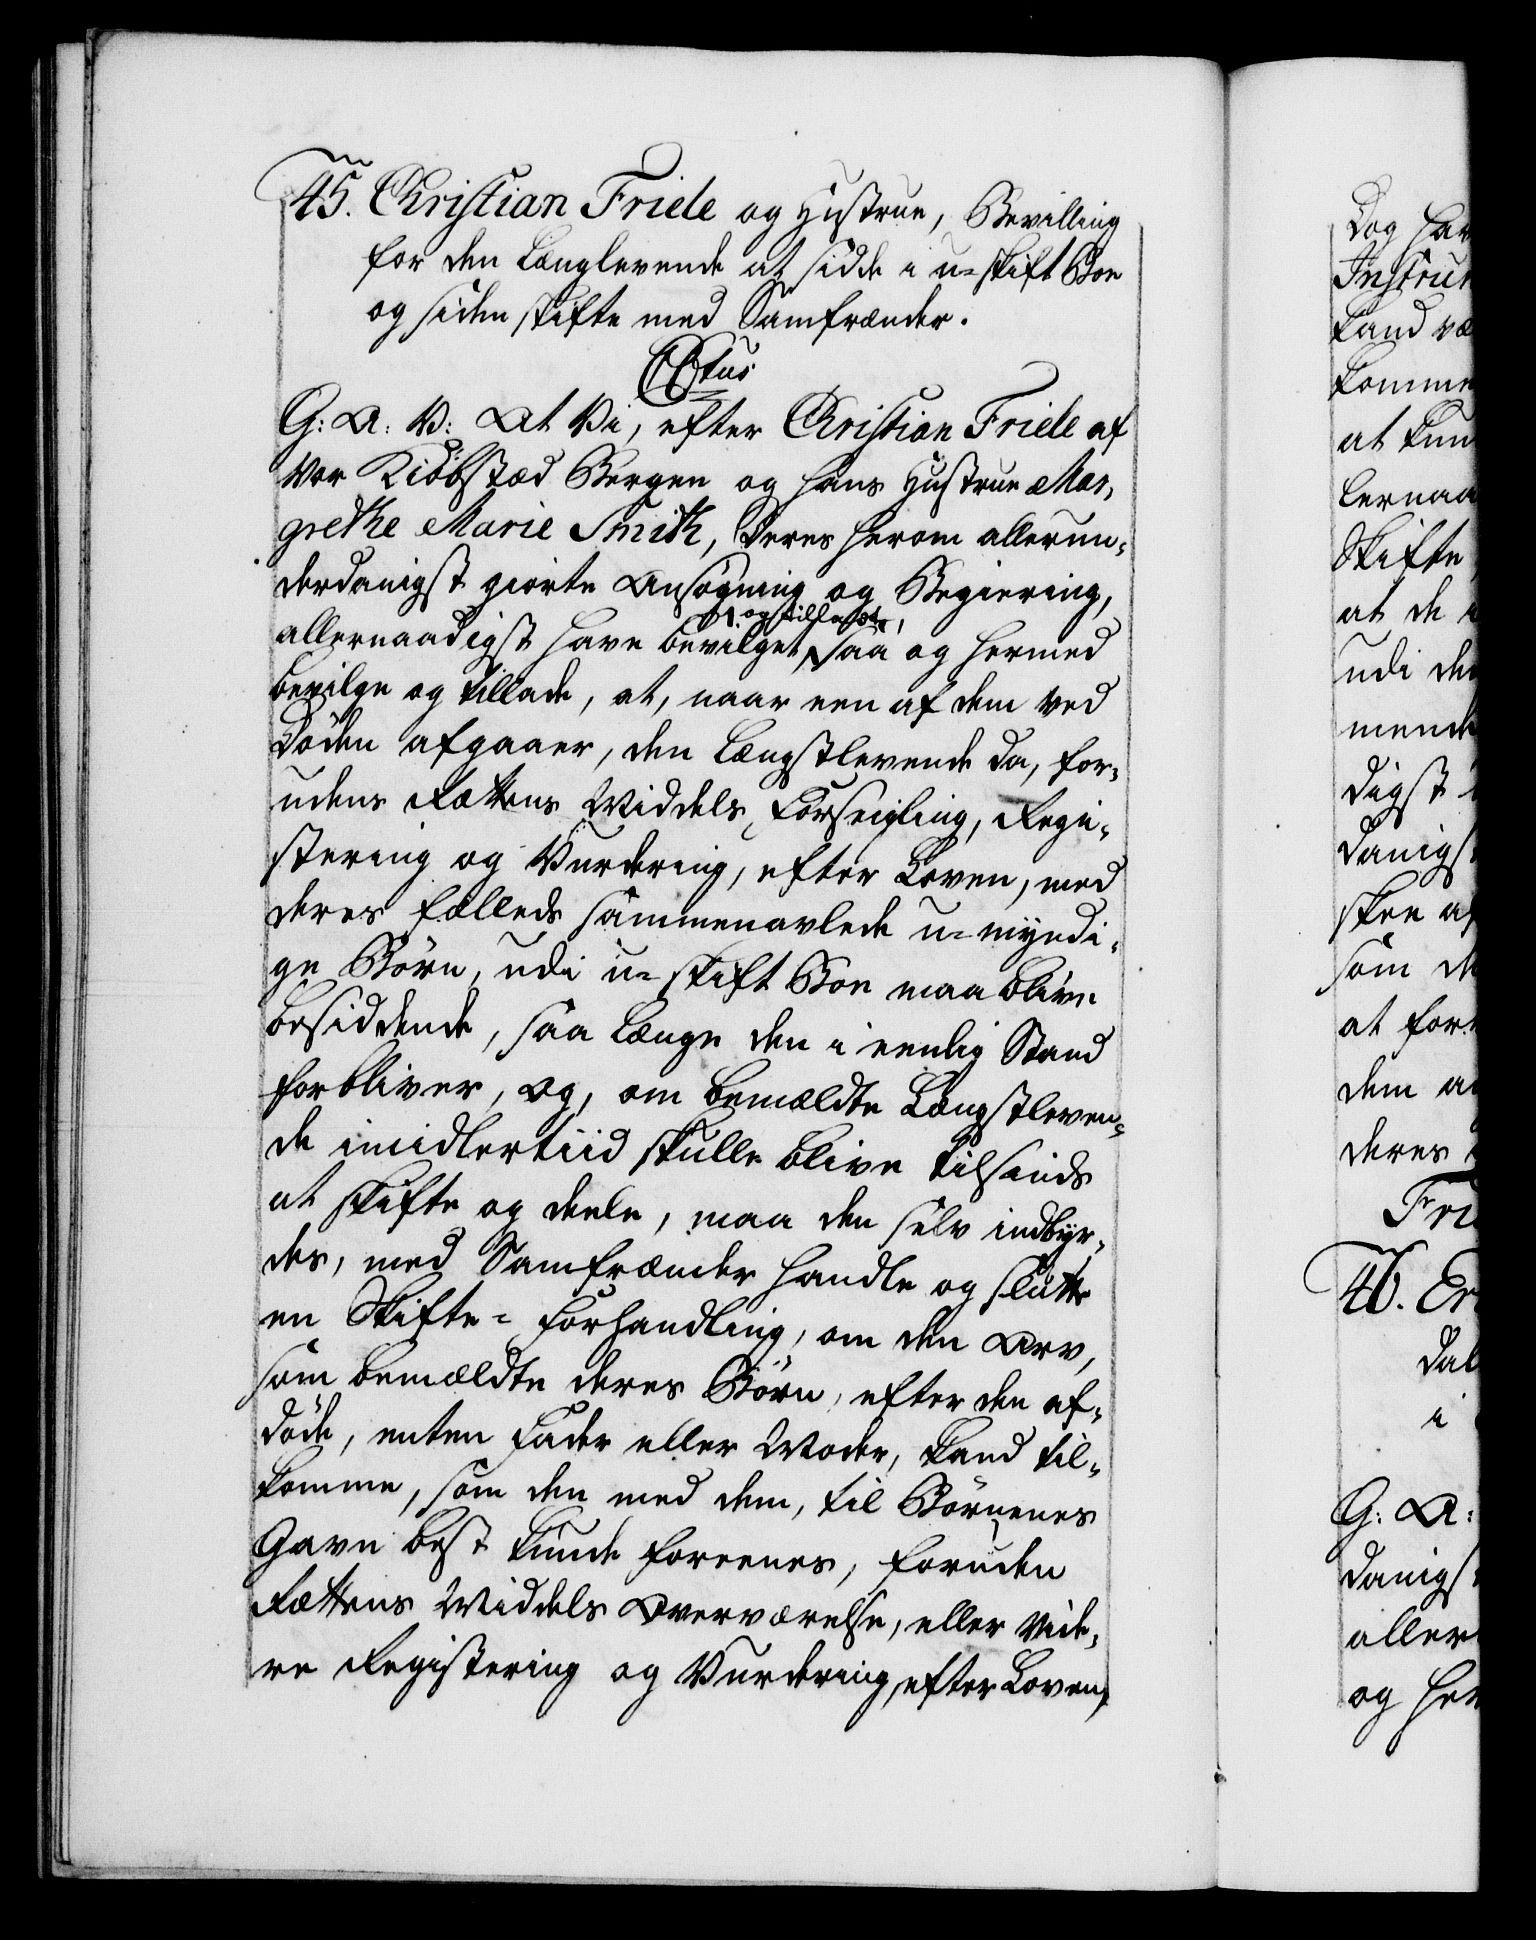 45. Christian Friele og Hustrue, Bevilling
for den Længlevende at sidde i u-skift Boe
og siden skifte med Samfrænder.
CBtus
G: A: V: At Vi, efter Christian Friele af
Vor Kiöbstæd Bergen og hans Hustrue Mar,
grethe Marie Smith, Deres herom allerun,
derdanigst giorte Ansögning og Begiering,
og tilladt,
allernaadigst have bevilget, saa og hermed
bevilge og tillade, at, naar een af dem ved
Döden afgaaer, den Længstlevende da, for,
udens Rettens Middels Forseigling, Regi,
stering og Vurdering, efter Loven, med
deres fælleds sammenavlede u-myndi,
ge Börn, udi u-skift Boe maa blive
besiddende, saa længe den i eenlig Stand
forbliver, Og, om bemældte Længstleven-
de imidlertiid skulle blive tilsinds
at skifte og deele, maa den selv indbyr,
des, med Samfrænder handle og slutte
en Skifte-Forhandling, om den Arv,
som bemældte deres Börn, efter den af,
döde, enten Fader eller Moder, kand til,
komme, som den med dem, til Börnenes
Gavn best kunde foreenes, foruden
Rettens Middels Overværelse, eller vide,
re Registering og Vurdering efter Loven,
Dog hav
Instru
kand væ
komme
at kun
lernaa
Skifte
at de
udi de
mende
digst
danigs
skee af
som de
at for
dem a
deres
Fri
46. Er
dal
i
G: A:
danigs
aller
og her